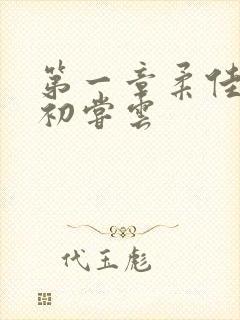 第一章柔佳
初尝云
代玉彪